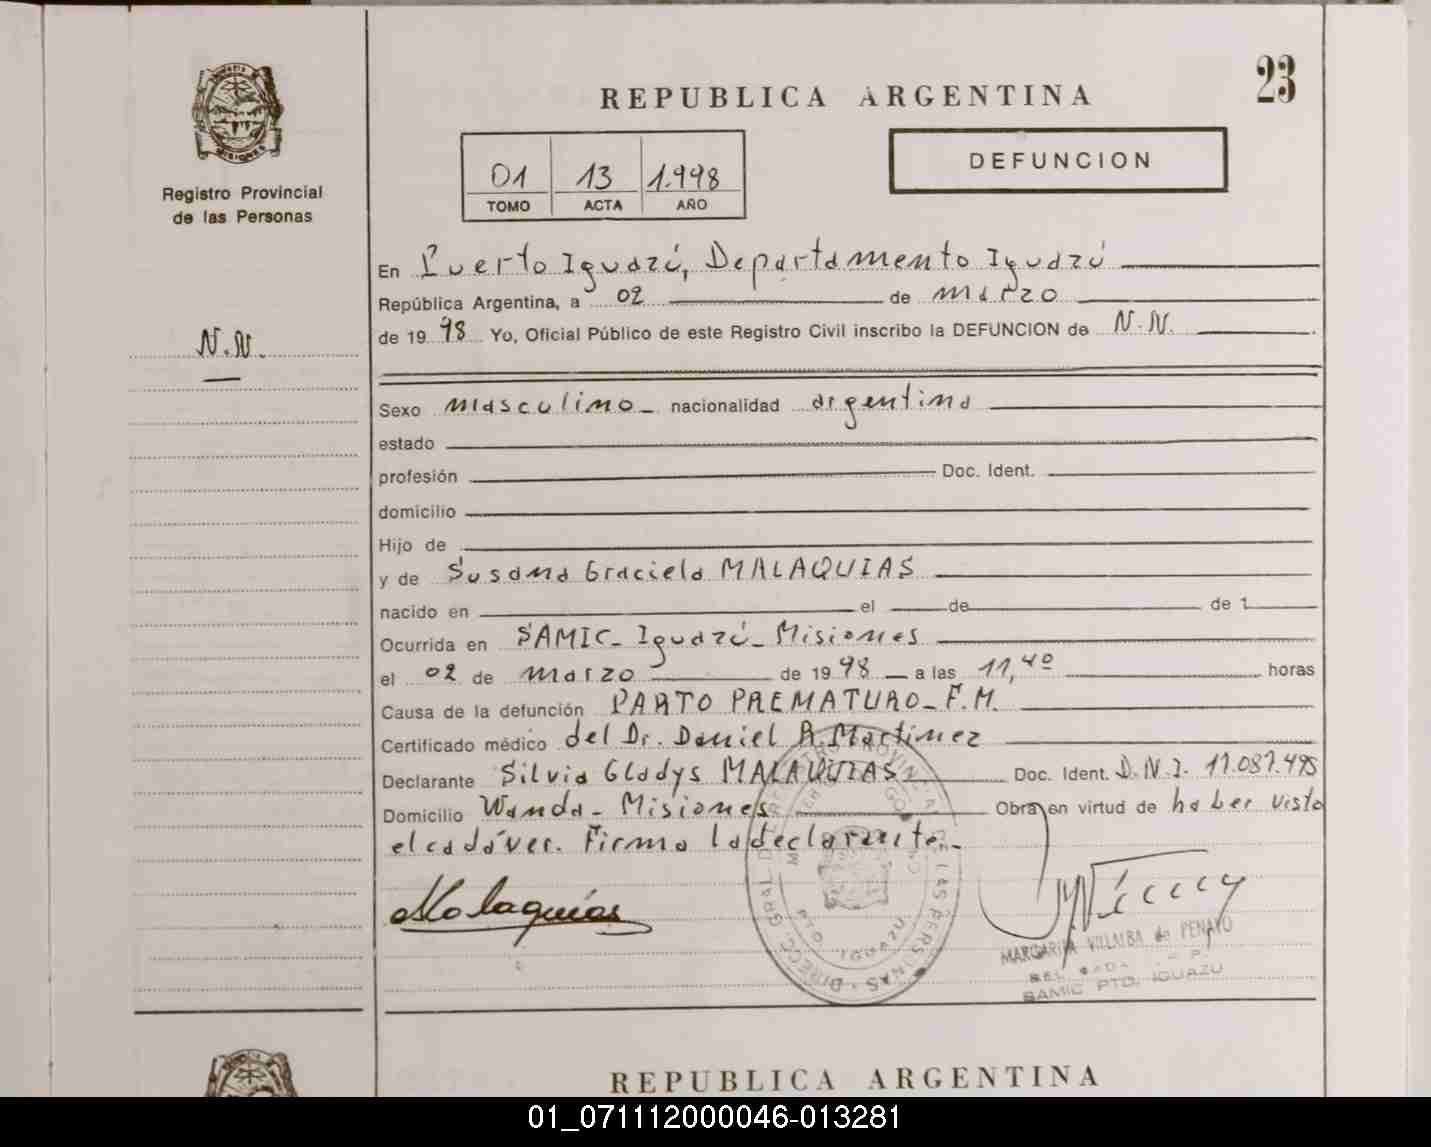 23
REPUBLICA ARGENTINA
01 13 1.998
TOMO ACTA AÑO
DEFUNCION
Registro Provincial
de las Personas
N.N.
En Puerto Iguazú, Departamento Iguazú
República Argentina, a 02 de marzo
de 19 98 Yo, Oficial Público de este Registro Civil inscribo la DEFUNCION de N.N.
Sexo masculino nacionalidad argentina
estado
profesión Doc. Ident.
domicilio
Hijo de
y de Susana Graciela MALAQUIAS
nacido en el de de 1
Ocurrida en SAMIC - Iguazú - Misiones
el 02 de marzo de 19 98 a las 11,40 horas
Causa de la defunción PARTO PREMATURO - F.M.
Certificado médico del Dr. Daniel R. Martinez
Declarante Silvia Gladys MALAQUIAS Doc. Ident. D.N.I.
Domicilio Wanda - Misiones Obra en virtud de haber visto
el cadáver. Firma la declarante.
Malaquías
DIRECC. GRAL. DE REGISTRO PROVINCIAL DE LAS PERSONAS
PTO IGUAZU
MARGARITA VILLALBA de PENAYO
SAMIC PTO. IGUAZU
REPUBLICA ARGENTINA
01_071112000046-013281